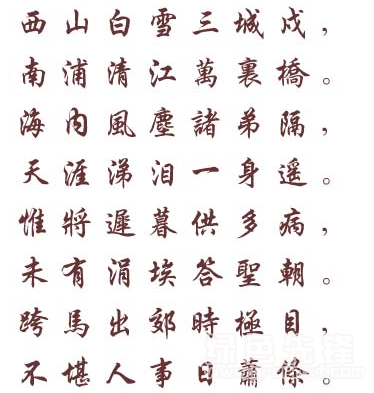 西山白雪三城戍，
南浦清江萬裏橋。
海内風塵諸弟隔，
天涯涕泪一身遥。
惟將遲暮供多病，
未有涓埃答聖朝。
跨馬出郊時極目，
不堪人事日蕭條。